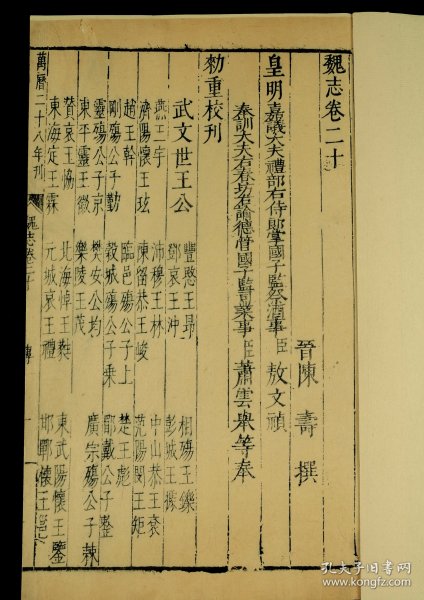 魏志卷二十
晉陳壽撰
皇明嘉議大夫禮部右侍郎掌國子監祭酒事臣敖文禎
奉訓大夫右春坊右諭德管國子監司業事臣蕭雲舉等奉
勑重校刊
武文世王公
豐愍王昂 相殤王鑠
燕王宇 鄧哀王沖 彭城王據
濟陽懷王玹 沛穆王林 中山恭王袞
趙王幹 陳留恭王峻 范陽閔王矩
剛殤公子勤 臨邑殤公子上 楚王彪
靈殤公子京 穀城殤公子乘 郿戴公子整
東平靈王徽 樊安公均 廣宗殤公子棘
贊哀王協 樂陵王茂
東海定王霖 北海悼王蕤 東武陽懷王鑒
元城哀王禮 邯鄲懷王邕
萬曆二十八年刊
魏志卷二十
傳
一
孔夫子旧书网
www.kongfz.com